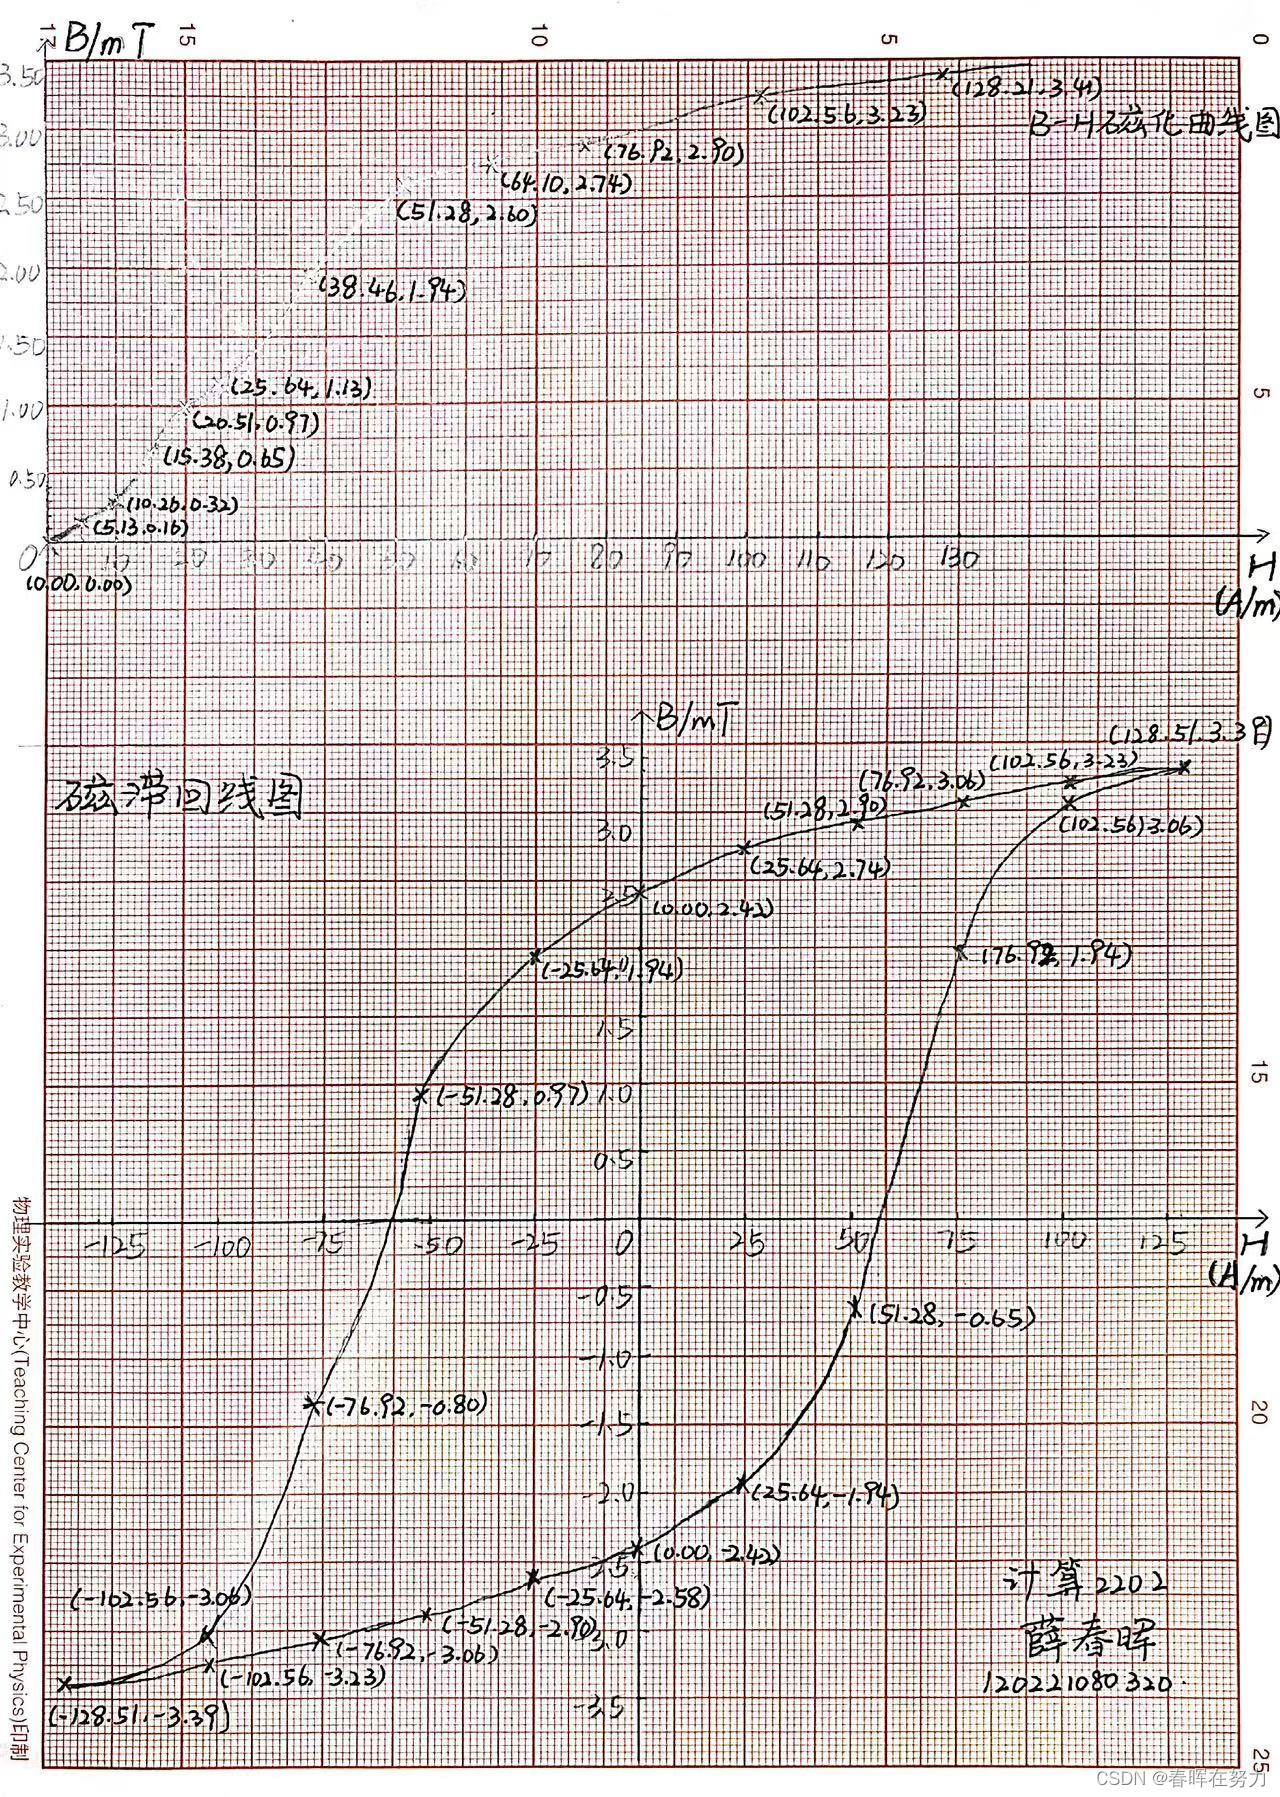 17 15 10 5 0
B/mT
3.50
(128.21, 3.41)
(102.56, 3.23)
B-H磁化曲线图
3.00
(76.92, 2.90)
(64.10, 2.74)
2.50
(51.28, 2.60)
2.00
(38.46, 1.94)
1.50
(25.64, 1.13)
5
1.00
(20.51, 0.97)
(15.38, 0.65)
0.50
(10.26, 0.32)
(5.13, 0.16)
0 10 20 30 40 50 60 70 80 90 100 110 120 130 H
(0.00, 0.00)
(A/m)
B/mT
(128.51, 3.39)
3.5
(102.56, 3.23)
磁滞回线图
(76.92, 3.06)
(51.28, 2.90)
3.0
(102.56, 3.06)
(25.64, 2.74)
2.5
(0.00, 2.42)
(76.92, 1.94)
(-25.64, 1.94)
1.5
15
(-51.28, 0.97) 1.0
0.5
-125 -100 -75 -50 -25 0 25 50 75 100 125 H
(A/m)
-0.5
(51.28, -0.65)
-1.0
(-76.92, -0.80)
-1.5
20
-2.0
(25.64, -1.94)
(0.00, -2.42)
2.5
计算2202
(-102.56, -3.06)
(-25.64, -2.58)
(-51.28, -2.90)
3.0
薛春晖
(-76.92, -3.06)
(-102.56, -3.23)
120221080320.
-3.5
(-128.51, -3.39)
25
物理实验教学中心(Teaching Center for Experimental Physics)印制
CSDN @春晖在努力